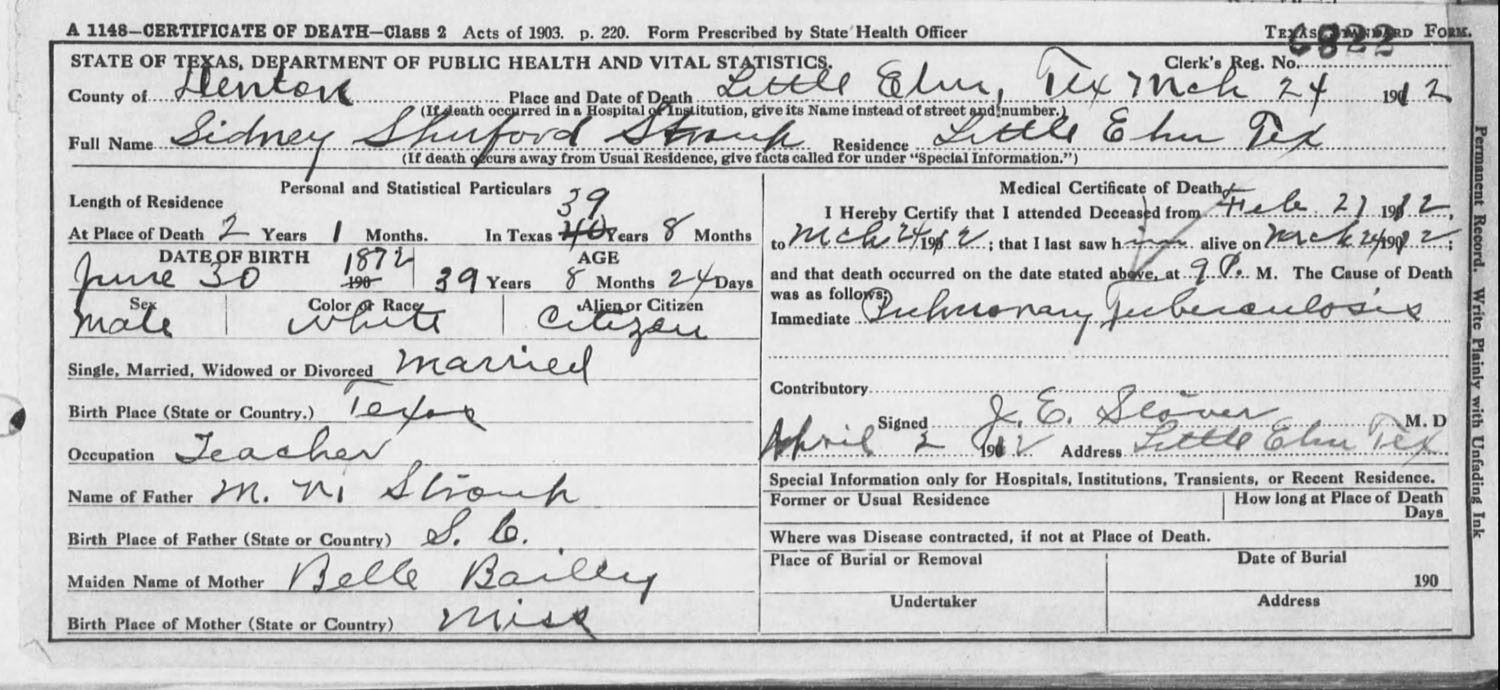 A 1148—CERTIFICATE OF DEATH—Class 2 Acts of 1903. p. 220. Form Prescribed by State Health Officer TEXAS STANDARD FORM.
6822
STATE OF TEXAS, DEPARTMENT OF PUBLIC HEALTH AND VITAL STATISTICS. Clerk's Reg. No.
County of Denton Place and Date of Death Little Elm, Tex Mch 24 1912
(If death occurred in a Hospital or Institution, give its Name instead of street and number.)
Full Name Sidney Shuford Stroup Residence Little Elm Tex
(If death occurs away from Usual Residence, give facts called for under "Special Information.")
Personal and Statistical Particulars
Length of Residence 39
At Place of Death 2 Years 1 Months. In Texas 40 Years 8 Months
DATE OF BIRTH AGE
June 30 1872 190 39 Years 8 Months 24 Days
Sex Color or Race Alien or Citizen
Male White Citizen
Single, Married, Widowed or Divorced Married
Birth Place (State or Country.) Texas
Occupation Teacher
Name of Father M. M Stroup
Birth Place of Father (State or Country) S. C.
Maiden Name of Mother Belle Bailey
Birth Place of Mother (State or Country) Miss
Medical Certificate of Death
I Hereby Certify that I attended Deceased from Feb 21 1912,
to Mch 24 1912; that I last saw him alive on Mch 24 1912;
and that death occurred on the date stated above, at 9 P. M. The Cause of Death
was as follows;
Immediate Pulmonary Tuberculosis
Contributory
Signed J. E. Stover M. D
April 2 1912 Address Little Elm Tex
Special Information only for Hospitals, Institutions, Transients, or Recent Residence.
Former or Usual Residence How long at Place of Death
Days
Where was Disease contracted, if not at Place of Death.
Place of Burial or Removal Date of Burial
190
Undertaker Address
Permanent Record. Write Plainly with Unfading Ink